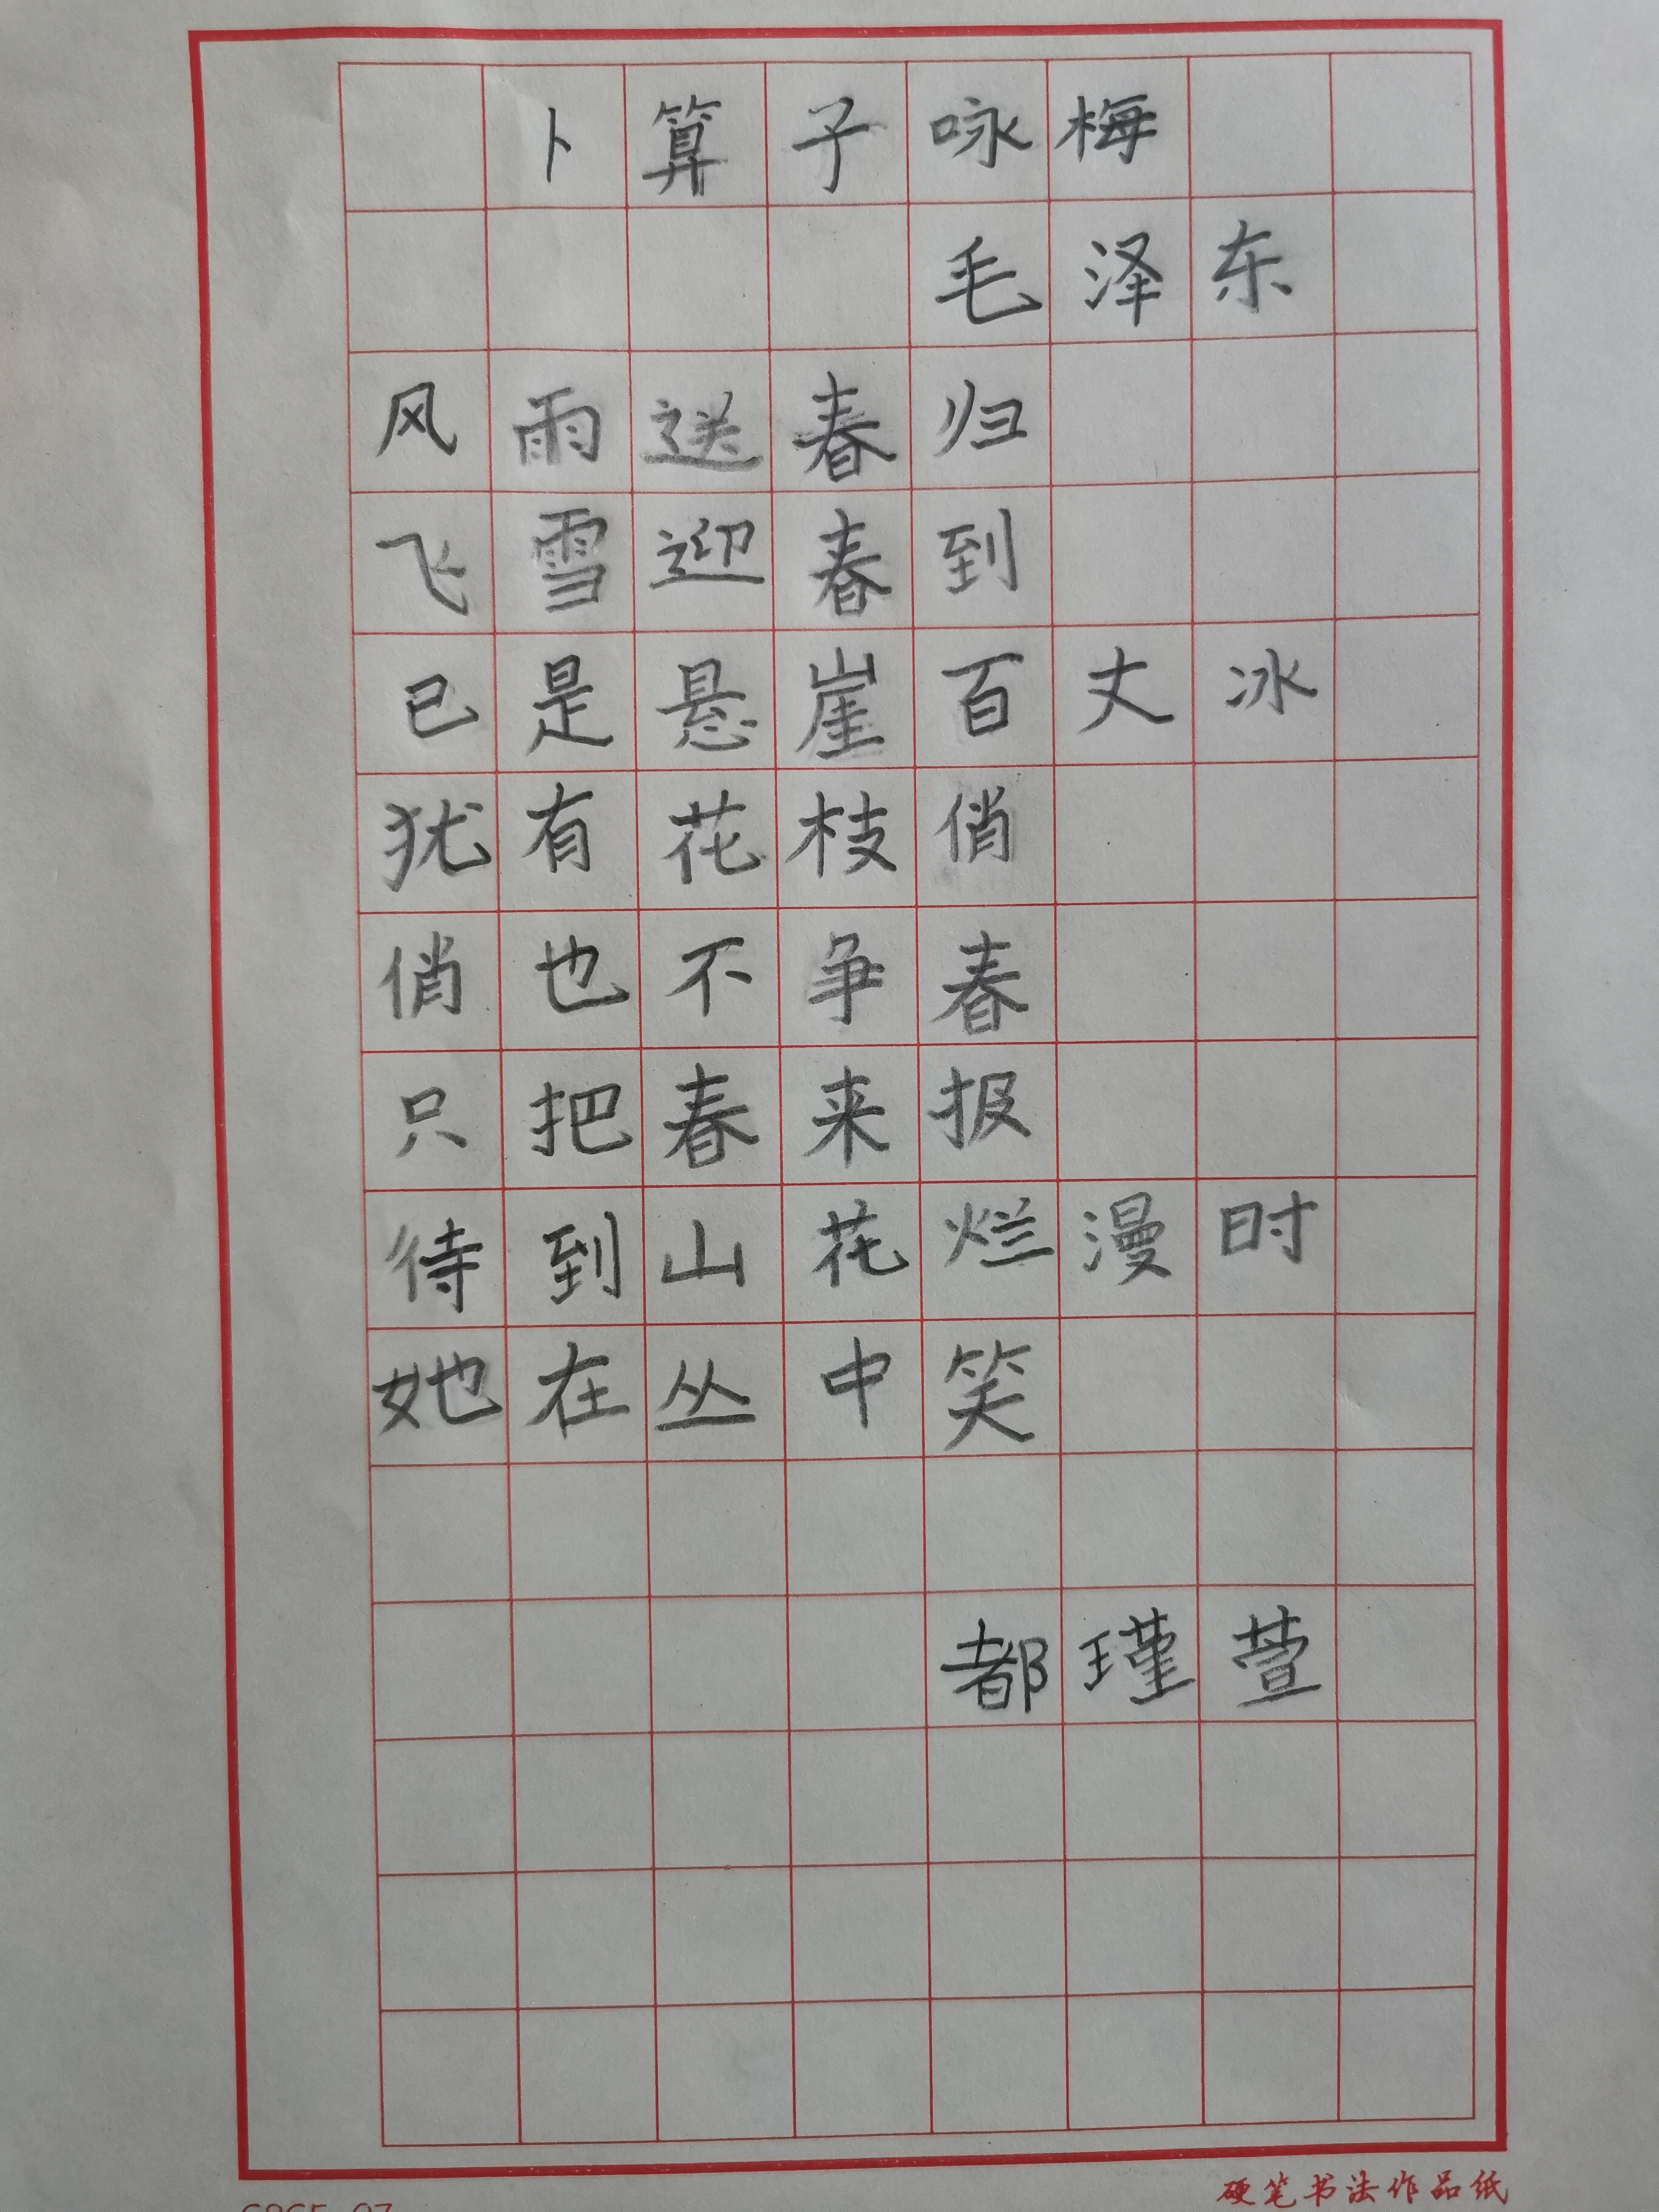 卜算子咏梅
毛泽东
风雨送春归
飞雪迎春到
已是悬崖百丈冰
犹有花枝俏
俏也不争春
只把春来报
待到山花烂漫时
她在丛中笑
都瑾萱
硬笔书法作品纸